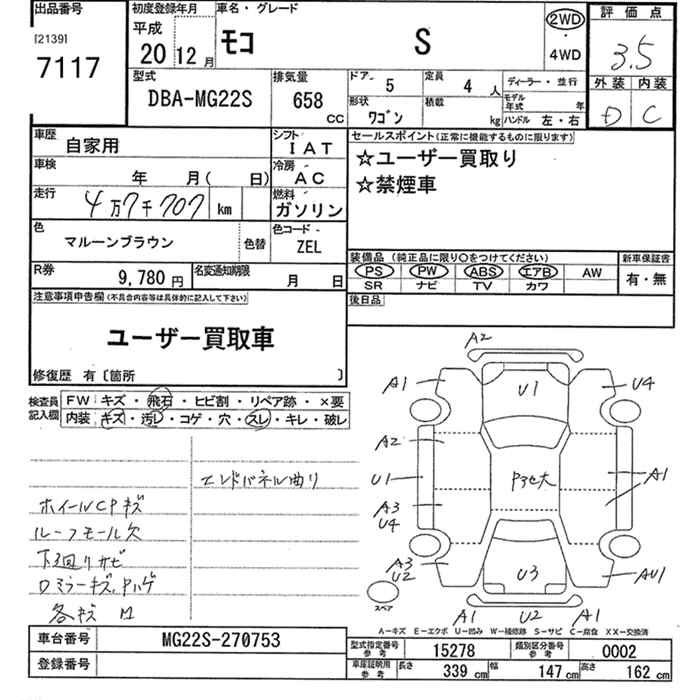 出品番号
[2139]
7117
初度登録年月
平成
20 12月
車名・グレード
モコ S
2WD
・
4WD
評価点
3.5
外装 内装
D C
型式
DBA-MG22S
排気量
658
CC
ドア・ 5
定員 4 人
形状 ワゴン
積載 kg
ディーラー・並行
モデル年式 年
ハンドル 左・右
車歴 自家用
シフト IAT
車検 年 月( 日)
冷房 AC
走行 4万7千707 km
燃料 ガソリン
色 マルーンブラウン 色替
色コード ZEL
R券 9,780円
名変通知期限 月 日
セールスポイント(正常に機能するものに限ります)
☆ユーザー買取り
☆禁煙車
装備品(純正品に限り○をつけてください)
PS PW ABS エアB AW
SR ナビ TV カワ
新車保証書
有・無
後日品
注意事項申告欄(不具合内容等は具体的に記入して下さい)
ユーザー買取車
修復歴 有〔箇所 〕
検査員記入欄
FW キズ・飛石・ヒビ割・リペア跡・×要
内装 キズ・汚レ・コゲ・穴・スレ・キレ・破レ
エンドパネル曲リ
ホイールCPキズ
ルーフモール欠
下廻リサビ
Dミラーキズ,Pハゲ
各キズ 凹
A2
A1 U1 U4
A2
U1 P3ヒ大 A1
A3
U4
A3
U2 U3 AU1
スペア
A1 U2 A1
A－キズ E－エクボ U－凹み W－補修跡 S－サビ C－腐食 XX－交換済
車台番号 MG22S-270753
登録番号
型式指定番号参考 15278
類別区分番号参考 0002
車庫証明用参考
長さ 339 cm
幅 147 cm
高さ 162 cm